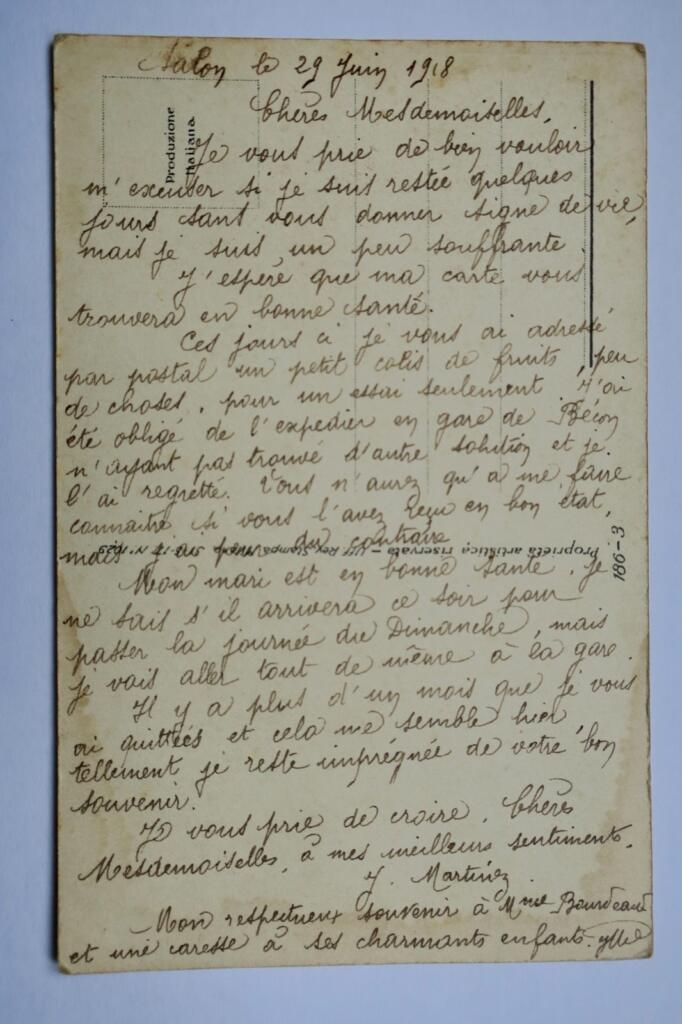 Salon le 29 Juin 1918
Chères Mesdemoiselles,
Je vous prie de bien vouloir
m'excuser si je suis restée quelques
jours sans vous donner signe de vie,
mais je suis un peu souffrante.
J'espère que ma carte vous
trouvera en bonne santé.
Ces jours ci je vous ai adressé
par postal un petit colis de fruits, peu
de choses, pour un essai seulement. J'ai
été obligé de l'expedier en gare de Bécon
n'ayant pas trouvé d'autre solution et je
l'ai regretté. Vous n'aurez qu'a me faire
connaitre si vous l'avez reçu en bon état,
mais j'ai peur du contraire
Mon mari est en bonne santé. je
ne sais s'il arrivera ce soir pour
passer la journée du Dimanche, mais
je vais aller tout de même à la gare.
Il y a plus d'un mois que je vous
ai quittées et cela me semble hier,
tellement je reste imprégnée de votre bon
souvenir.
Je vous prie de croire, Chères
Mesdemoiselles, à mes meilleurs sentiments.
Y. Martinez
Mon respectueux souvenir à Mme Bourdeaud
et une caresse à ses charmants enfants.
Produzione
Italiana.
Proprietà artistica riservata
186-3